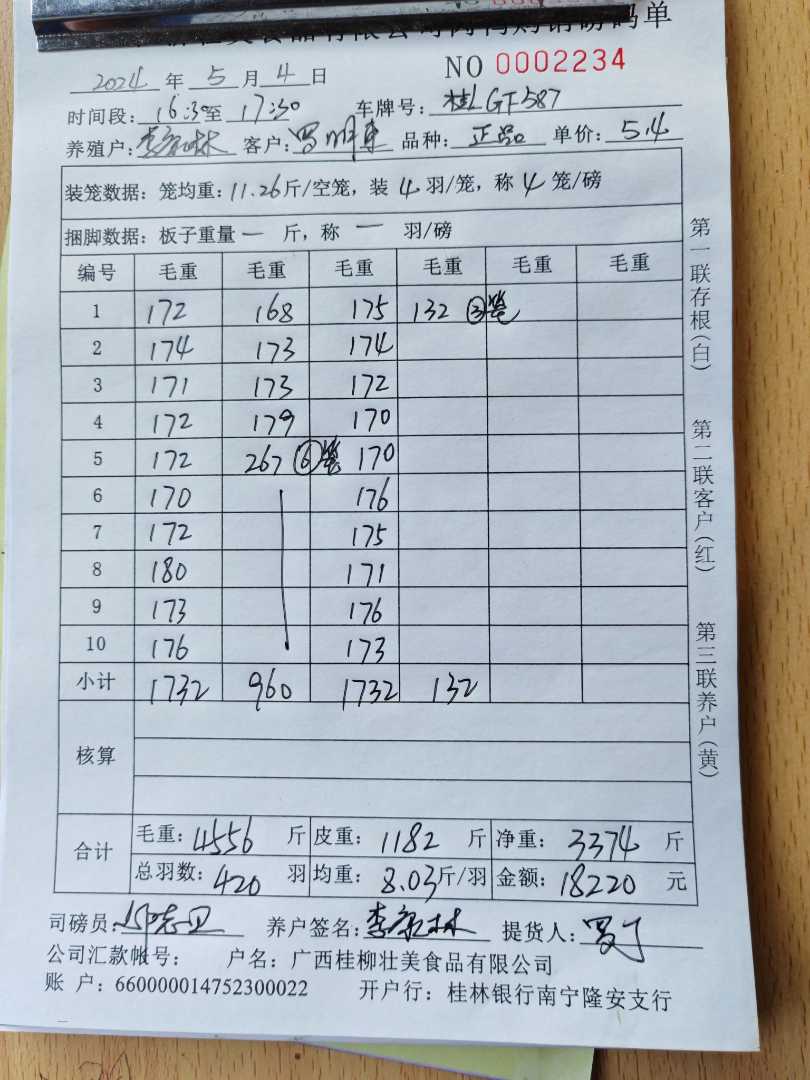 NO 0002234
2024 年 5 月 4 日
时间段: 16:30至 17:30 车牌号: 桂LGF587
养殖户: 李康林 客户: 罗明 品种: 正品 单价: 5.4
装笼数据: 笼均重: 11.26斤/空笼, 装 4 羽/笼, 称 4 笼/磅
捆脚数据: 板子重量 一 斤, 称 一 羽/磅
编号 毛重 毛重 毛重 毛重 毛重 毛重
1 172 168 175 132 ③笼
2 174 173 174
3 171 173 172
4 172 179 170
5 172 267 ⑥笼 170
6 170 176
7 172 175
8 180 171
9 173 176
10 176 173
小计 1732 960 1732 132
核算
合计 毛重: 4556 斤 皮重: 1182 斤 净重: 3374 斤
总羽数: 420 羽 均重: 8.03斤/羽 金额: 18220 元
司磅员: 养户签名: 李康林 提货人: 罗
公司汇款帐号: 户名: 广西桂柳壮美食品有限公司
账 户: 660000014752300022 开户行: 桂林银行南宁隆安支行
第一联存根(白)
第二联客户(红)
第三联养户(黄)